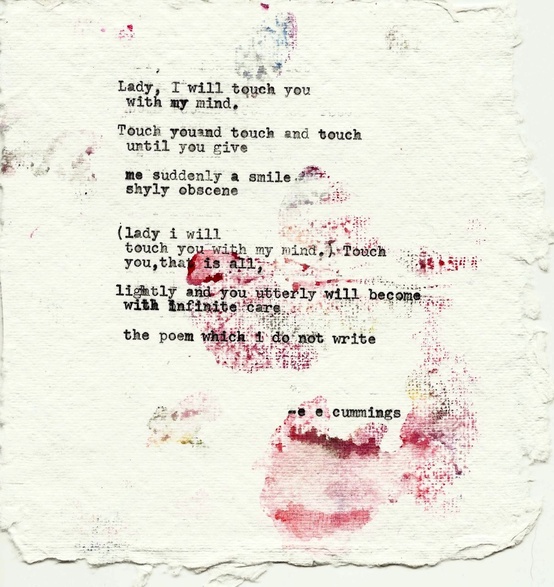 Lady, I will touch you
with my mind.
Touch youand touch and touch
until you give
me suddenly a smile
shyly obscene
(lady i will
touch you with my mind.) Touch
you,that is all,
lightly and you utterly will become
with infinite care
the poem which i do not write
-e e cummings